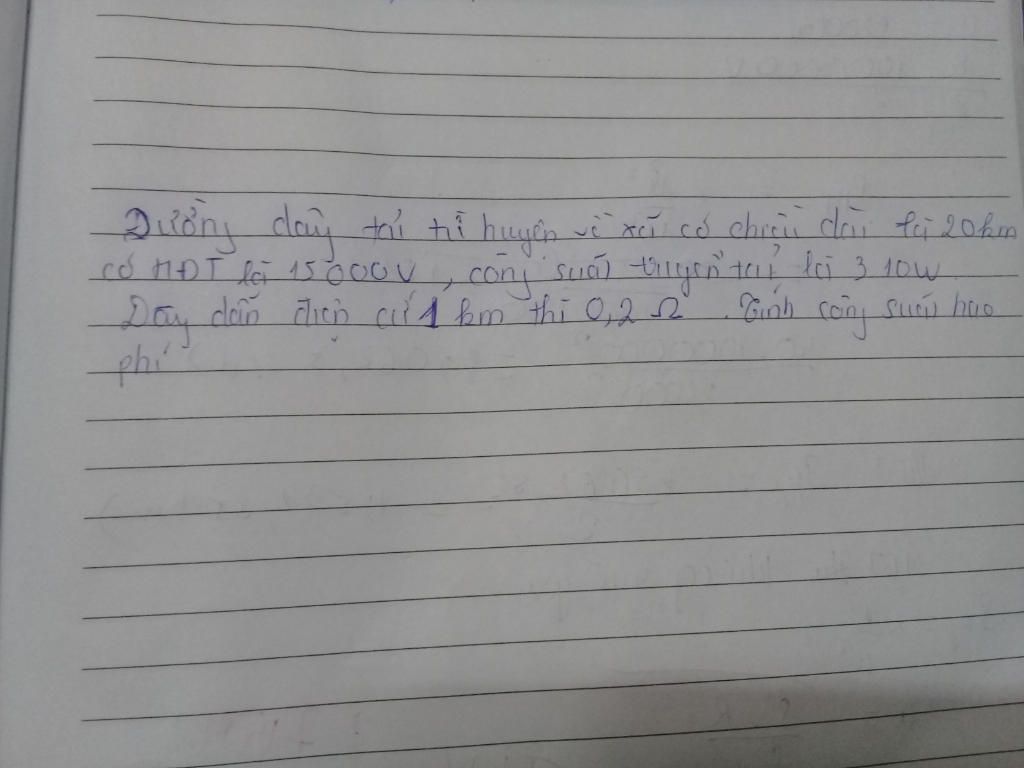 Đường dây tải từ huyện về xã có chiều dài là 20km
có HĐT là 15000V, công suất truyền tải là 3 10W
Dây dẫn điện cứ 1 km thì 0,2 Ω. Tính công suất hao
phí